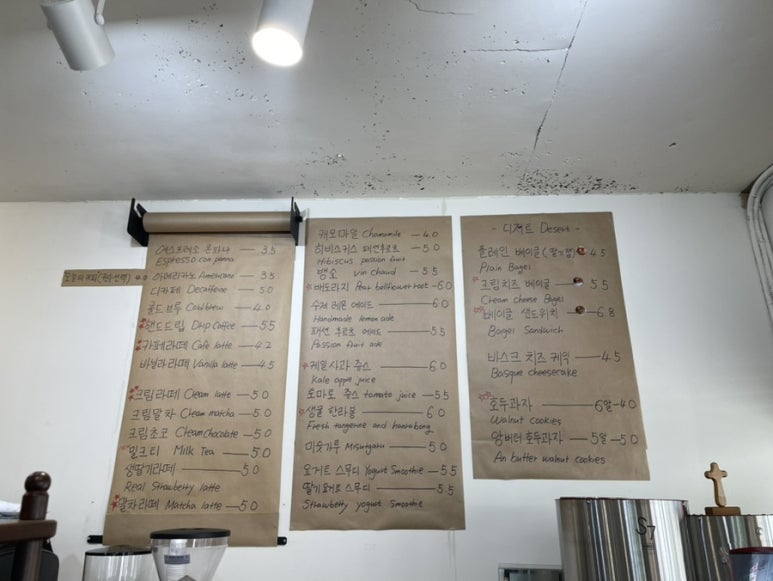 에스프레소 콘파나 — 3.5
Espresso con panna
오늘의 커피 4.0
아메리카노 Americano — 3.5
디카페 Decaffeine — 5.0
콜드브루 Cold brew — 4.0
핸드드립 Drip coffee — 5.5
카페라떼 Cafe latte — 4.2
바닐라라떼 Vanilla latte — 4.5
크림라떼 Cream latte — 5.0
크림말차 Cream matcha — 5.0
크림초코 Cream chocolate — 5.0
밀크티 Milk Tea — 5.0
생딸기라떼 — 5.0
Real Strawberry latte
말차라떼 Matcha latte — 5.0
캐모마일 Chamomile — 4.0
히비스커스 패션후르츠 — 5.0
Hibiscus passion fruit
뱅쇼 vin chaud — 5.5
배도라지 Pear bellflower root — 6.0
수제 레몬 에이드 — 6.0
Handmade lemon ade
패션 후르츠 에이드 — 5.5
Passion fruit ade
케일사과 쥬스 — 6.0
Kale apple juice
토마토 쥬스 tomato juice — 5.5
생귤 한라봉 — 6.0
Fresh tangerine and hanrabong
미숫가루 Misutgaru — 5.0
요거트 스무디 Yogurt Smoothie — 5.5
딸기요거트 스무디 — 5.5
Strawberry yogurt smoothie
- 디저트 Desert -
플레인 베이글 (딸기잼) 4.5
Plain Bagel
크림치즈 베이글 — 5.5
Cream cheese Bagel
베이글 샌드위치 — 6.8
Bagel Sandwich
바스크 치즈 케익 — 4.5
Basque cheesecake
호두과자 — 6알 - 4.0
Walnut cookies
앙버터 호두과자 — 5알 - 5.0
An butter walnut cookies